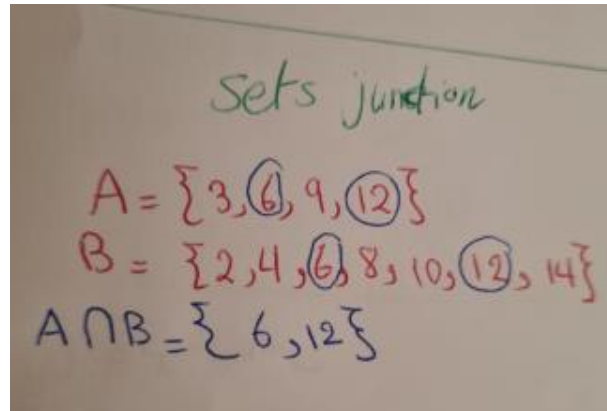 Sets junction
A = {3, 6, 9, 12}
B = {2, 4, 6, 8, 10, 12, 14}
A ∩ B = {6, 12}